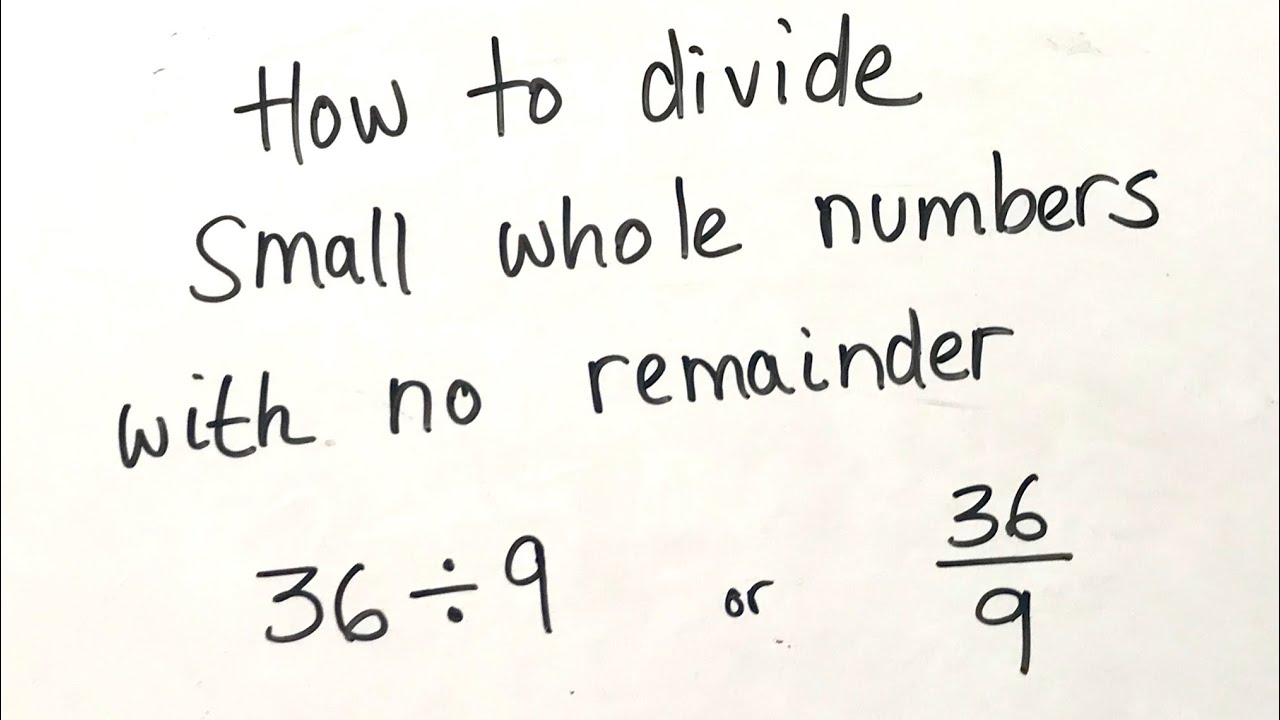 How to divide
Small whole numbers
with no remainder
36 ÷ 9 or 36/9